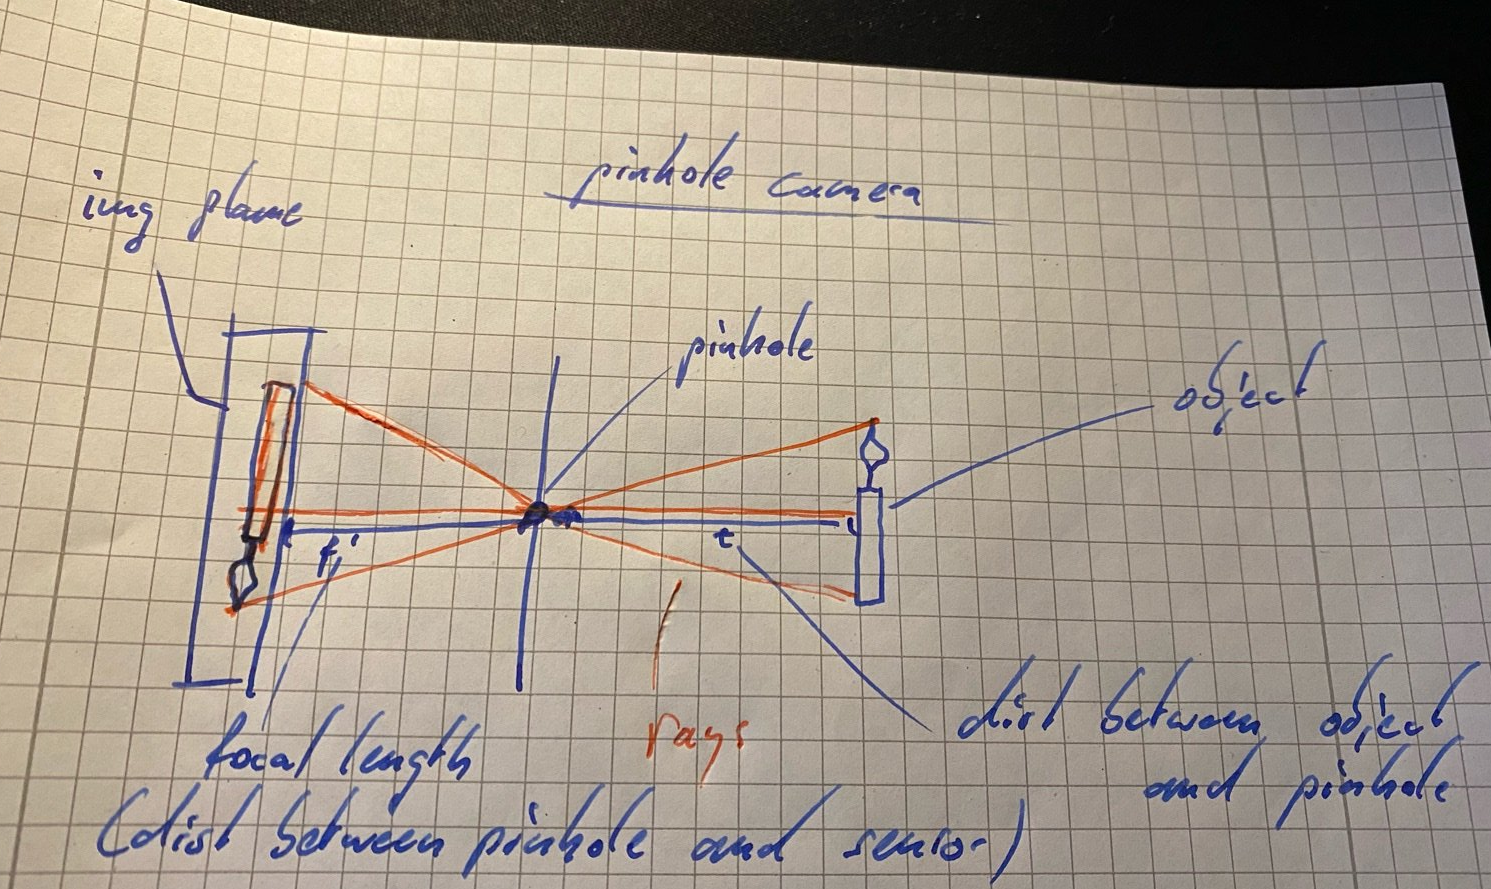 pinhole camera
img plane
pinhole
object
f
t
focal length
(dist between pinhole and sensor)
rays
dist between object
and pinhole